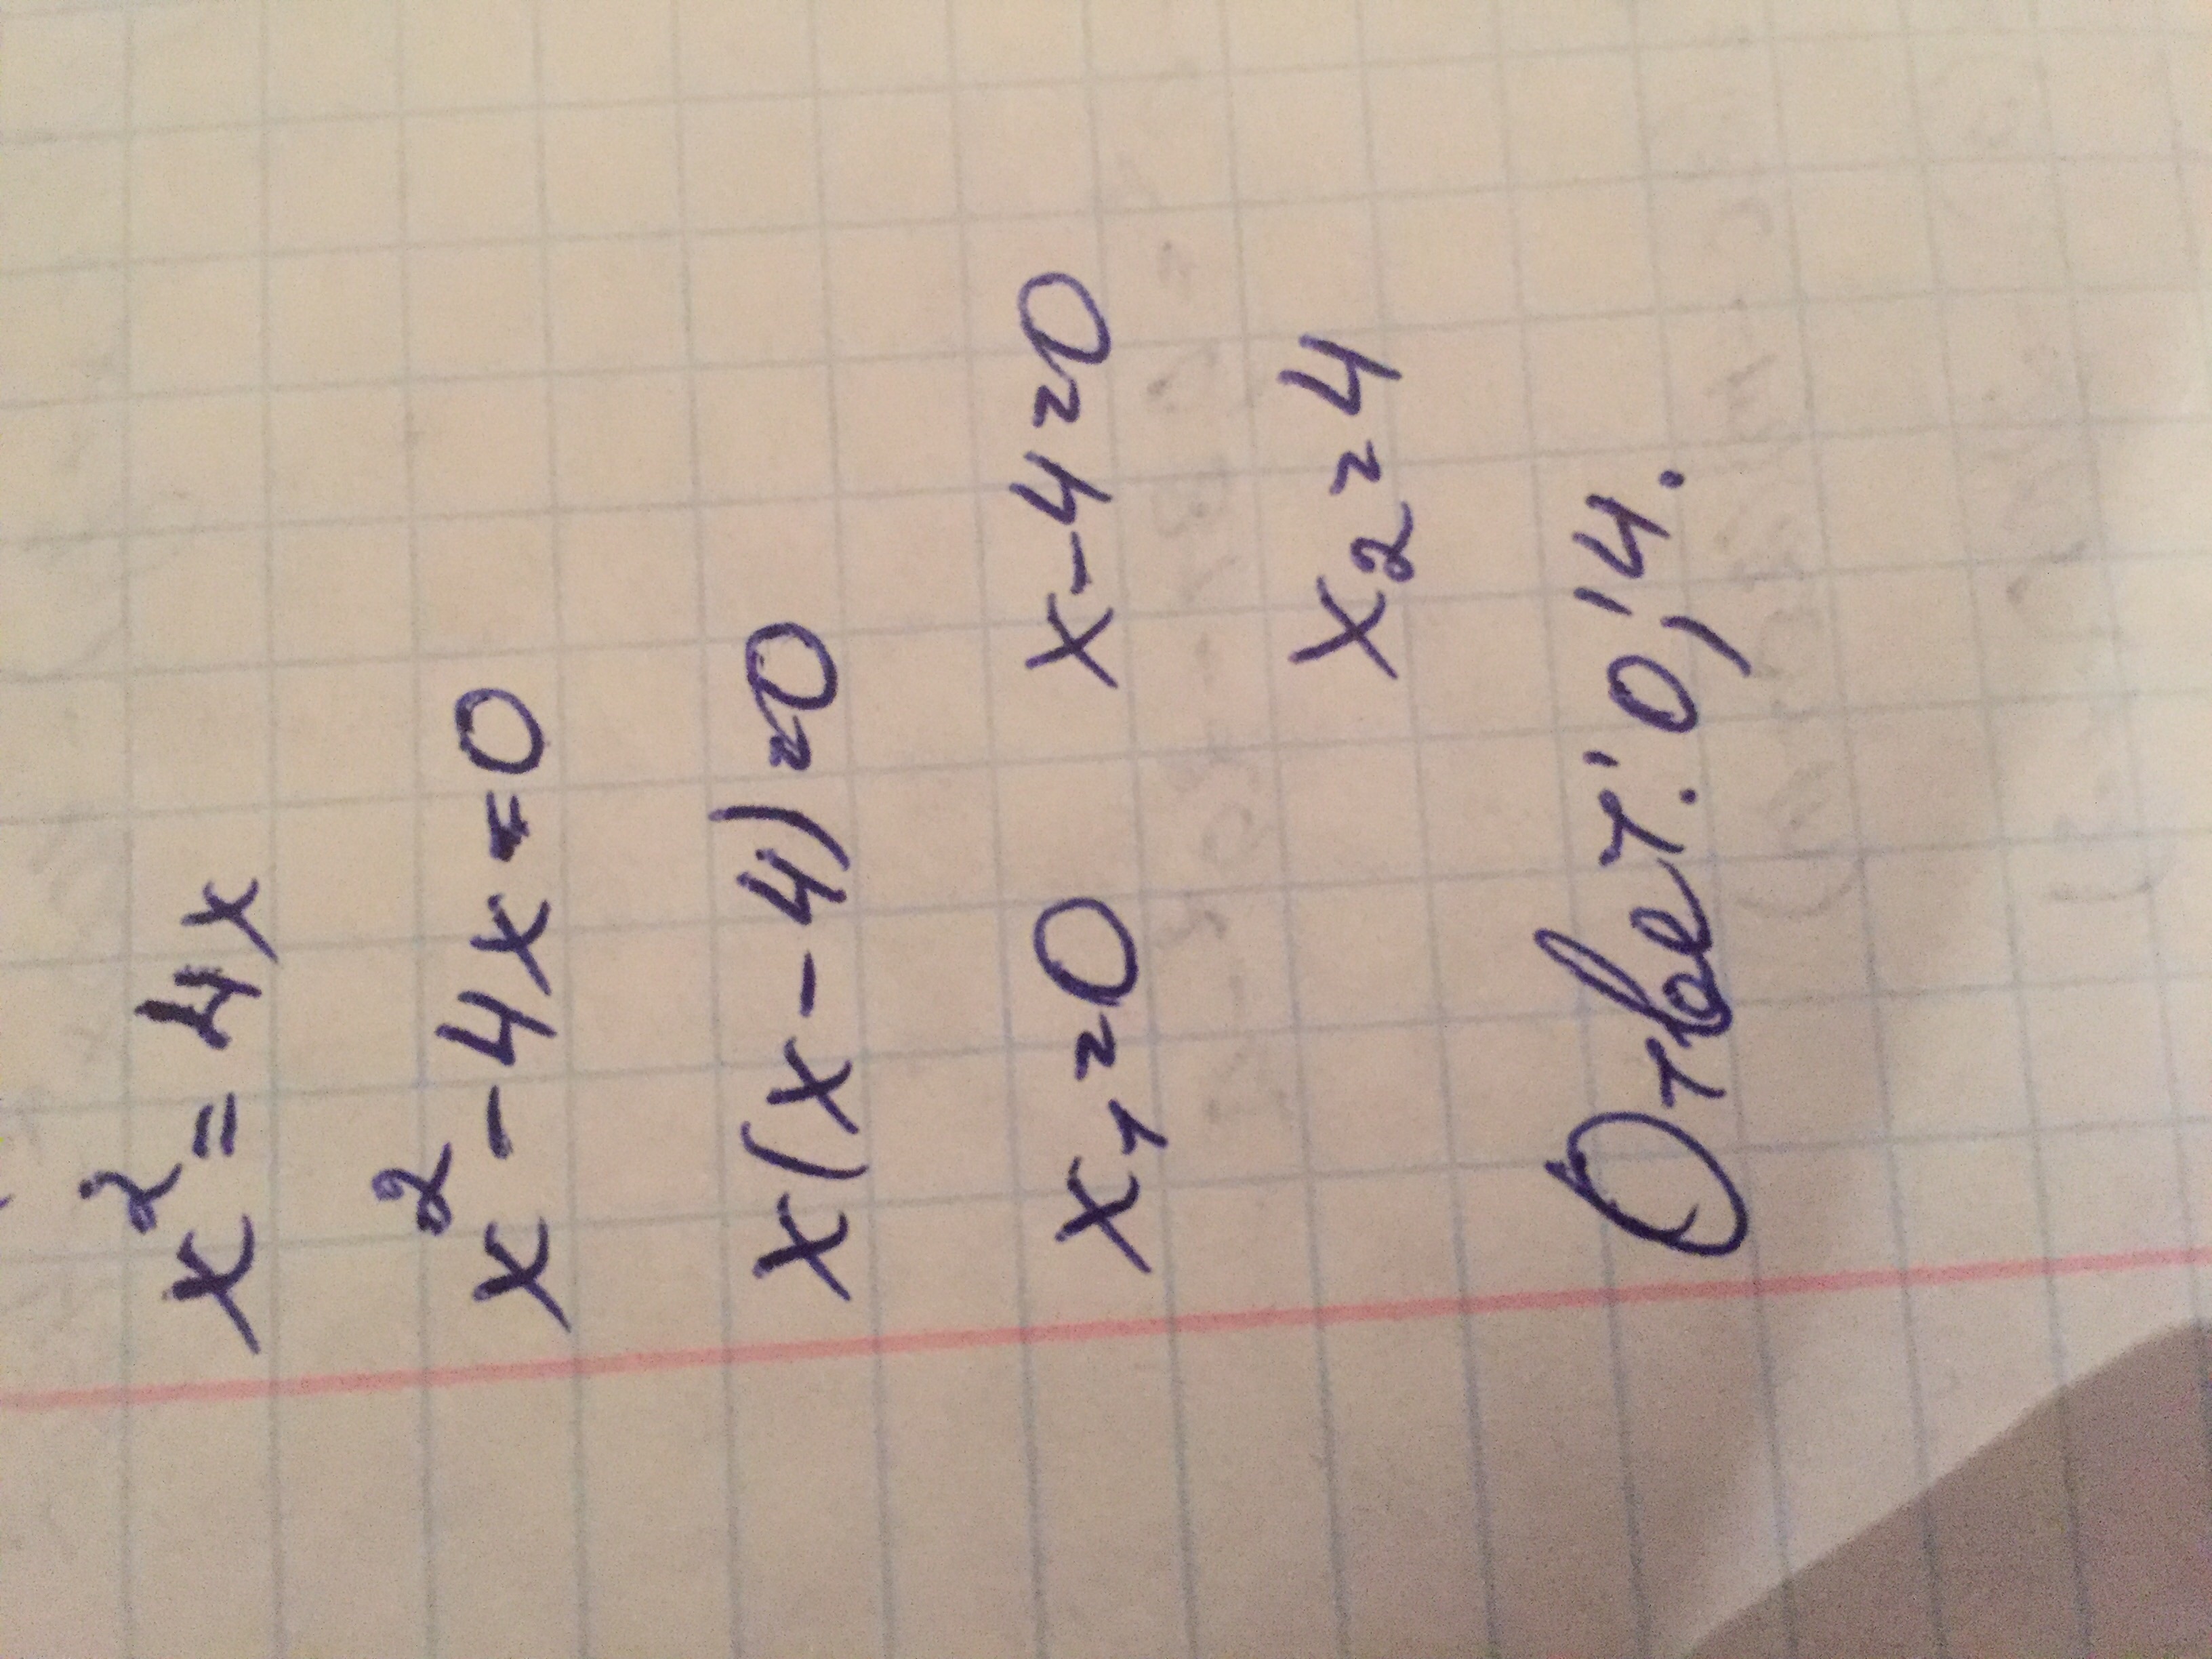 x² = 4x
x² - 4x = 0
x(x - 4) = 0
x₁ = 0 x - 4 = 0
x₂ = 4
Ответ: 0; 4.